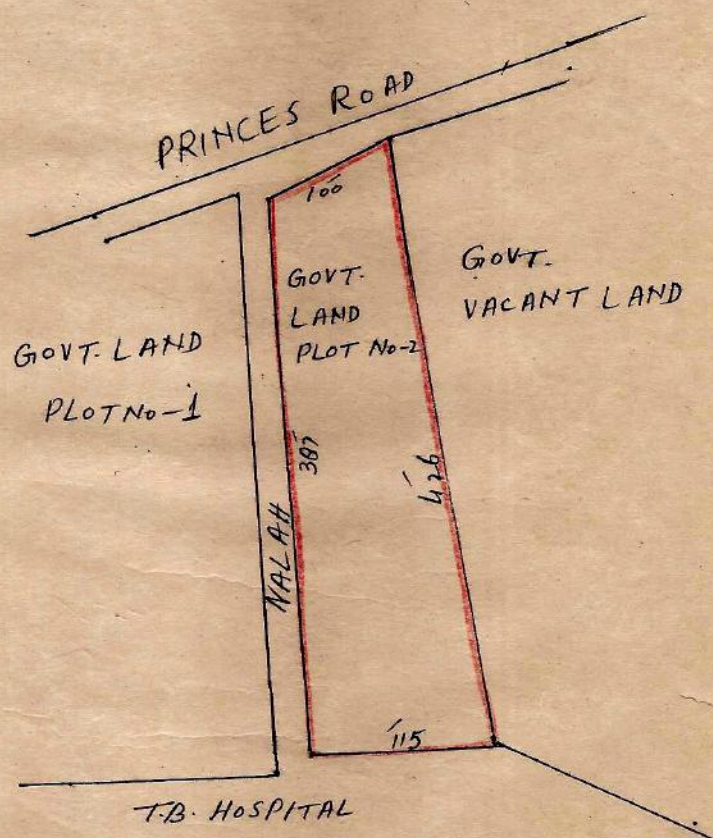 PRINCES ROAD
100'
GOVT.
LAND
PLOT No-2
GOVT.
VACANT LAND
GOVT. LAND
PLOT No-1
387'
426'
NALAH
115'
T.B. HOSPITAL